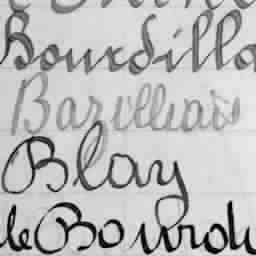 Bourdilla
Bazilliais
Blay
de Bourd